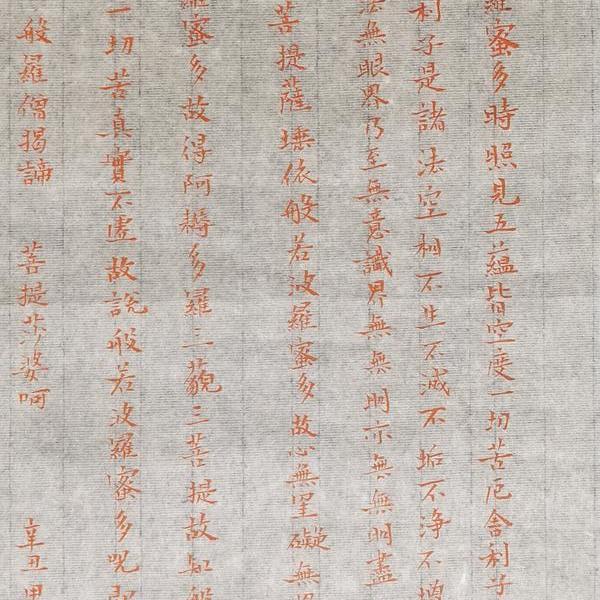 蜜多時照見五蘊皆空度一切苦厄舍利子
利子是諸法空相不生不滅不垢不净不增
法無眼界乃至無意識界無無明亦無無明盡
菩提薩埵依般若波羅蜜多故心無罣礙無
蜜多故得阿耨多羅三藐三菩提故知般
一切苦真實不虛故說般若波羅蜜多咒即
般羅僧揭諦 菩提莎婆呵 辛丑